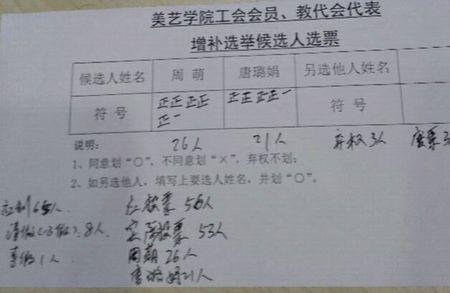 美艺学院工会会员、教代会代表
增补选举候选人选票
候选人姓名 周 萌 唐璐娟 另选他人姓名
符号 正正 正正 正正正正一 符号
正一
26人 21人 弃权 3人 废票 3
说明:
1、同意划“○”,不同意划“×”,弃权不划;
2、如另选他人,填写上要选人姓名,并划“○”。
应到65人 红 票 56人
请假 8人 实 投票 53人
事假1人 周萌 26人
唐 21人